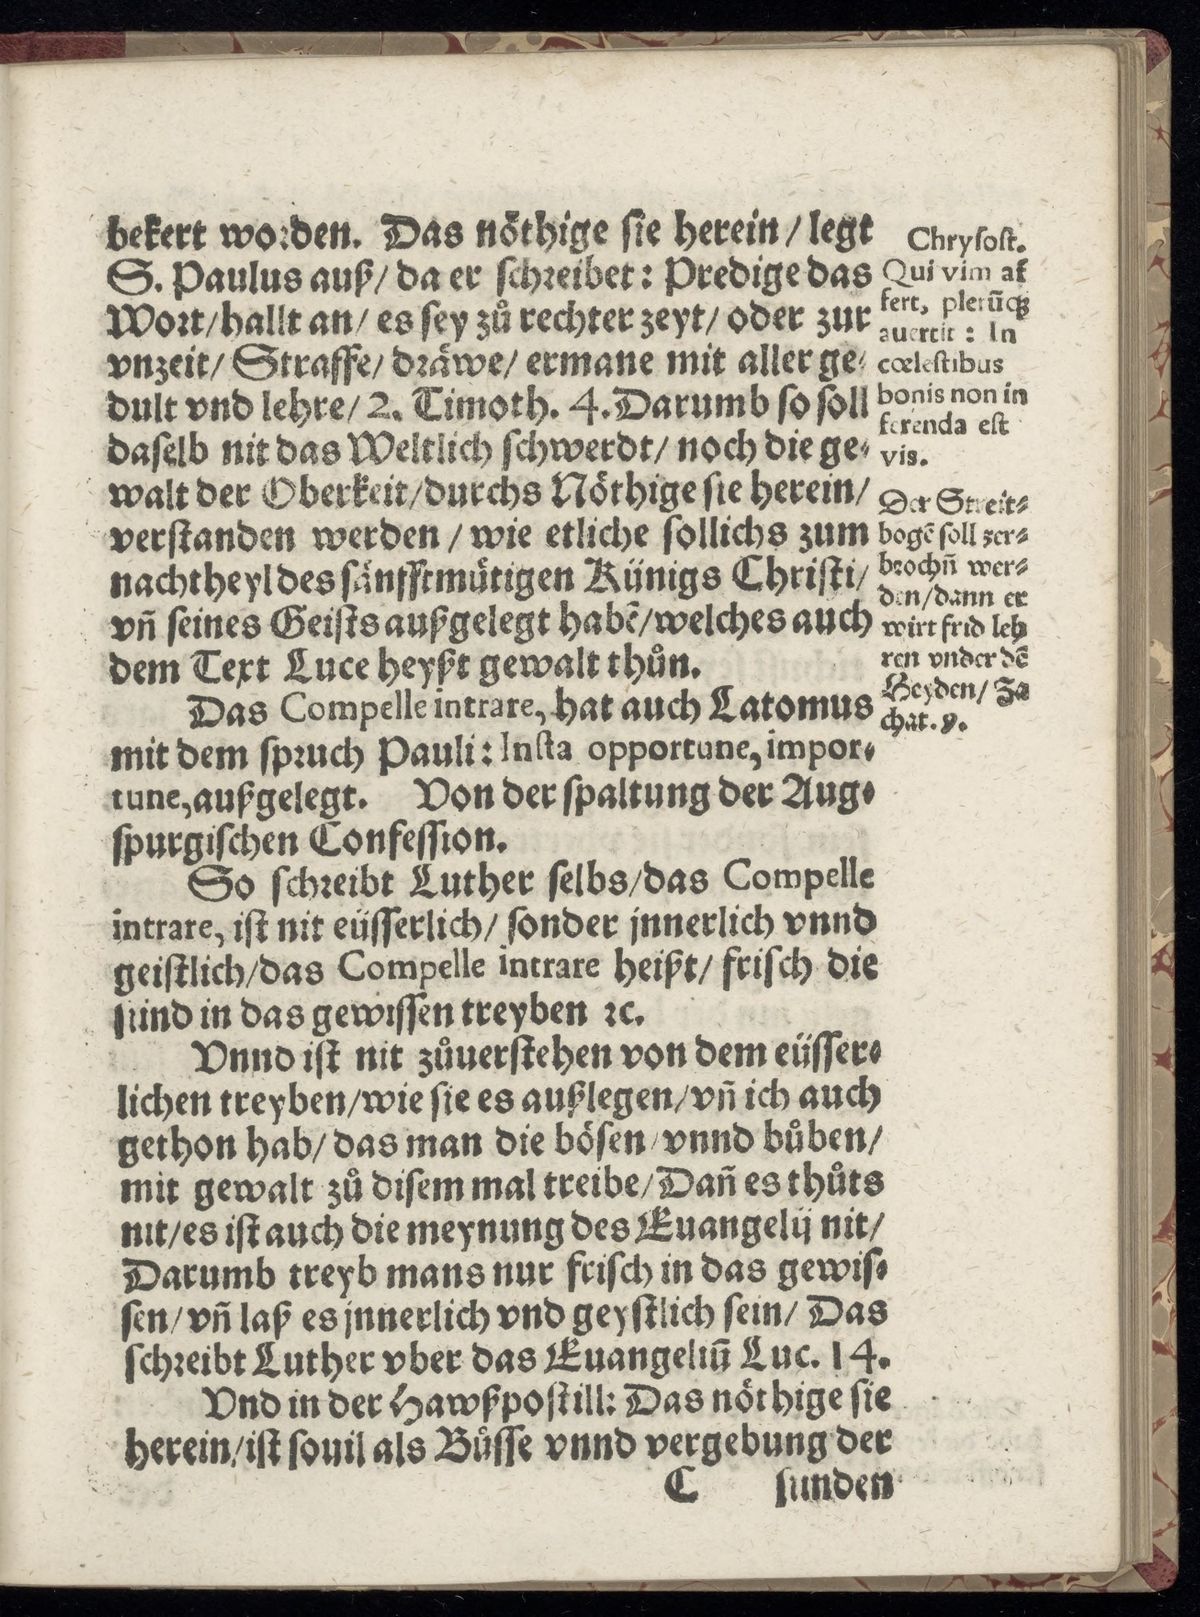 bekert worden. Das nöthige sie herein / legt
S. Paulus auß / da er schreibet : Predige das
Wort / hallt an / es sey zů rechter zeyt / oder zur
vnzeit / Straffe / dräwe / ermane mit aller ge⸗
dult vnd lehre / 2. Timoth. 4. Darumb so soll
daselb nit das Weltlich schwerdt / noch die ge⸗
walt der Oberkeit / durchs Nöthige sie herein /
verstanden werden / wie etliche sollichs zum
nachtheyl des sänfftmütigen Künigs Christi /
vñ seines Geists außgelegt habẽ / welches auch
dem Text Luce heyßt gewalt thůn.
Das Compelle intrare, hat auch Latomus
mit dem spruch Pauli : Insta opportune, impor⸗
tune, außgelegt. Von der spaltung der Aug⸗
spurgischen Confession.
So schreibt Luther selbs / das Compelle
intrare, ist nit eüsserlich / sonder jnnerlich vnnd
geistlich / das Compelle intrare heißt / frisch die
sünd in das gewissen treyben ꝛc.
Vnnd ist nit zůuerstehen von dem eüsser⸗
lichen treyben / wie sie es außlegen / vñ ich auch
gethon hab / das man die bösen / vnnd bůben /
mit gewalt zů disem mal treibe / Dañ es thůts
nit / es ist auch die meynung des Euangelij nit /
Darumb treyb mans nur frisch in das gewis⸗
sen / vñ laß es jnnerlich vnd geystlich sein / Das
schreibt Luther vber das Euangeliũ Luc. 14.
Vnd in der Hawßpostill: Das nöthige sie
herein / ist souil als Bůsse vnnd vergebung der
C sünden
Chrysost.
Qui vim af
fert, plerũq;
auertit : In
cœlestibus
bonis non in
ferenda est
vis.
Der Streit⸗
bogẽ soll zer⸗
brochñ wer⸗
den / dann er
wirt frid leh
ren vnder dẽ
Heyden / Za
chat. 9.